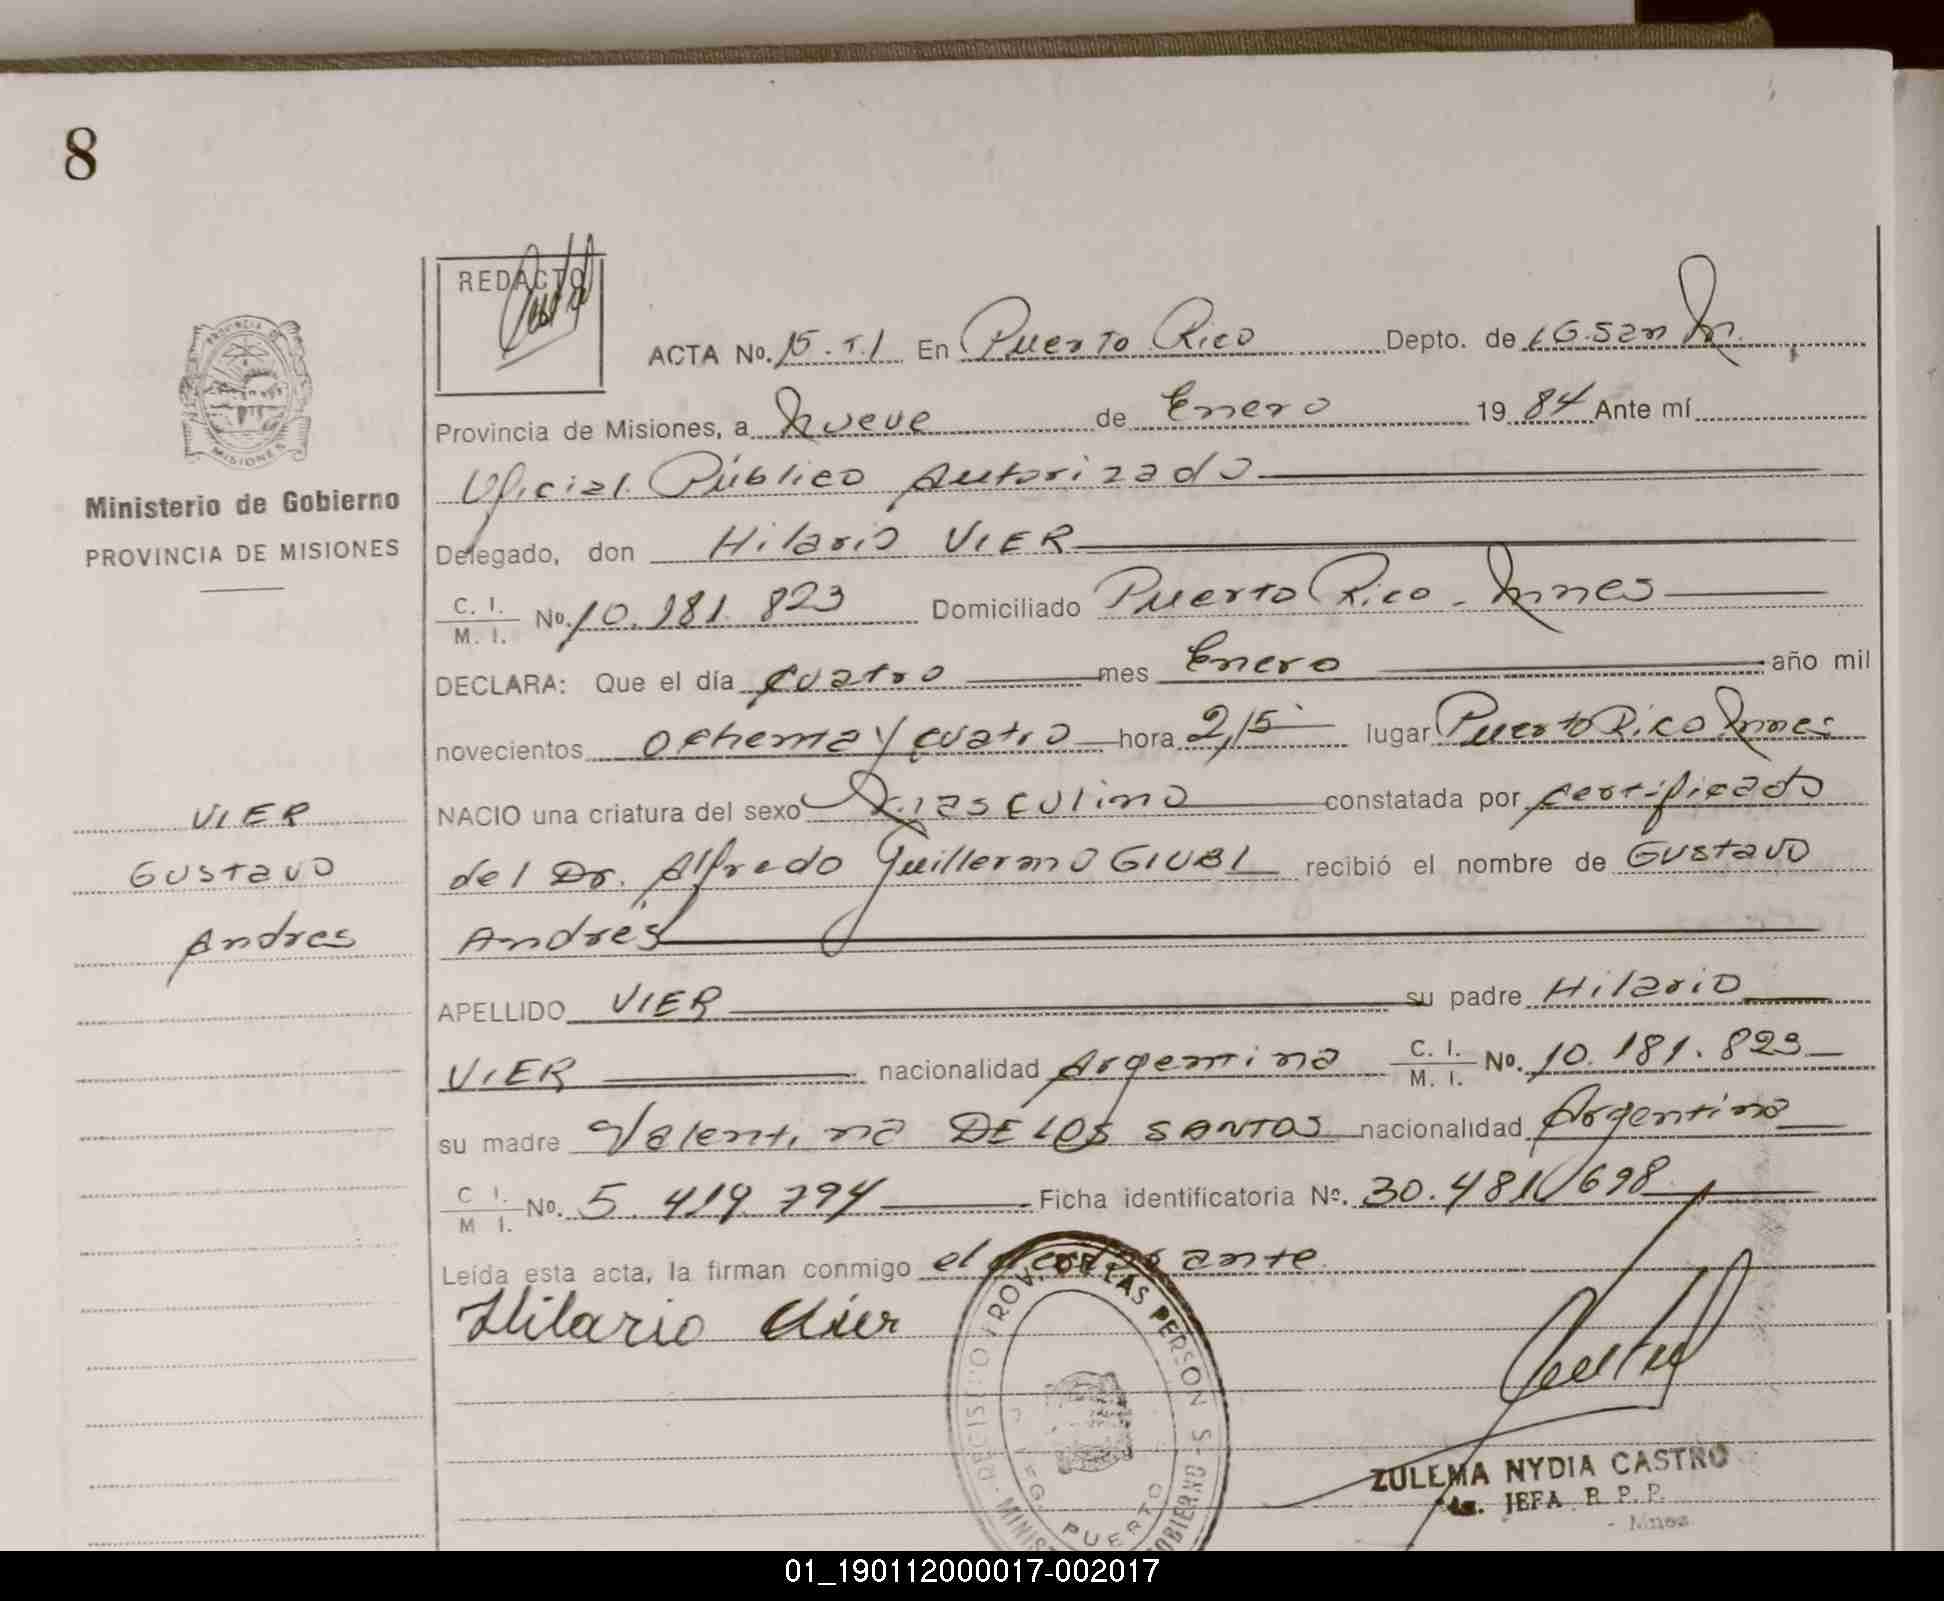 8
REDACTO
ACTA No. 15. T.1 En Puerto Rico Depto. de LG.San M.
Provincia de Misiones, a Nueve de Enero 19 84 Ante mí
Oficial Público Autorizado
Delegado, don Hilario VIER
C. I. / M. I. No. 10.181.823 Domiciliado Puerto Rico - Mnes
DECLARA: Que el día cuatro mes Enero año mil
novecientos ochenta y cuatro hora 2,15 lugar Puerto Rico Mnes
NACIO una criatura del sexo Masculino constatada por certificado
del Dr. Alfredo Guillermo GIUBI recibió el nombre de Gustavo
Andrés
APELLIDO VIER su padre Hilario
VIER nacionalidad Argentina C. I. / M. I. No. 10.181.823
su madre Valentina DE LOS SANTOS nacionalidad Argentina
C I. / M I. No. 5.419.794 Ficha identificatoria Nº. 30.481.698
Leída esta acta, la firman conmigo el declarante
Hilario Vier
Ministerio de Gobierno
PROVINCIA DE MISIONES
VIER
Gustavo
Andres
PROVINCIA DE
MISIONES
PROV. DE LAS PERSON S
PUERTO
ZULEMA NYDIA CASTRO
JEFA R.P.P.
- Mnes
01_190112000017-002017